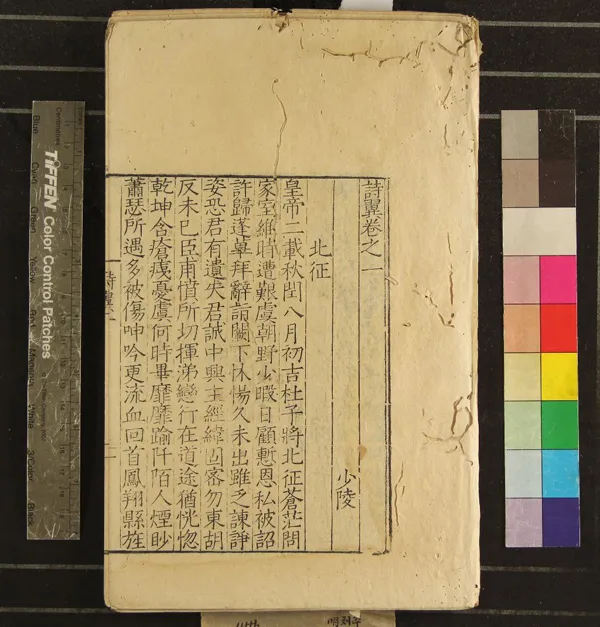 詩翼卷之一
北征
少陵
皇帝二載秋閏八月初吉杜子將北征蒼茫問
家室維時遭艱虞朝野少暇日顧慙恩私被詔
許歸蓬蓽拜辭詣闕下怵惕久未出雖乏諫諍
姿恐君有遺失君誠中興主經緯固密勿東胡
反未已臣甫憤所切揮涕戀行在道途猶恍惚
乾坤含瘡痍憂虞何時畢靡靡踰阡陌人煙眇
蕭瑟所遇多被傷呻吟更流血回首鳳翔縣旌
TIFFEN Color Control Patches
Centimetres
Blue
Cyan
Green
Yellow
Red
Magenta
White
3/Color
Black